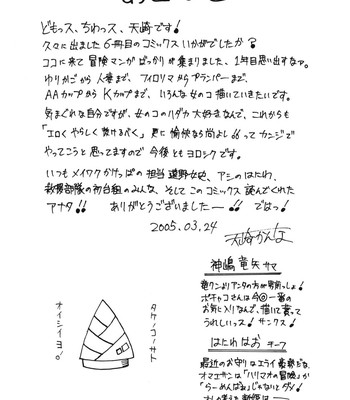 あとがき
どもっス、ちわっス、天崎です!
久々に出ました6冊目のコミックスいかがでしたか?
ココに来て冒険マンガばっかりが集まりました、1年目思い出すなァ。
ゆりかごから人妻まで、フィロリマからプランパーまで、
AAカップからKカップまで、いろんな女のコ描いていきたいです。
気まぐれな自分ですが、女のコのハダカ大好きなんで、これからも
「エロくやらしく抜けるべく」更に愉快なら尚よし!!ってカンジで
やってこうと思ってますので今後ともヨロシクです。
いつもメイワクかけっぱの担当 道野女史、アシのはたれわ、
救援部隊の初台組のみんな、そしてこのコミックス読んでくれた
アナタ!! ありがとうございましたー!! ではっ!
2005.03.24
天崎かんな
神嶋 竜矢サマ
竜クンよりアンタの方が男前っしょ!
ポチャコさんは今回一番の
お気に入りなんで、描いて貰って
うれしいっス!サンクス!
はたれはおチーフ
最近のお守りはエライ豪勢だな、
オマエサンは「ハリマオの冒険」か
「らーめんばぁ」じゃないとダメ!
タケノコノサト
オイシイヨ!